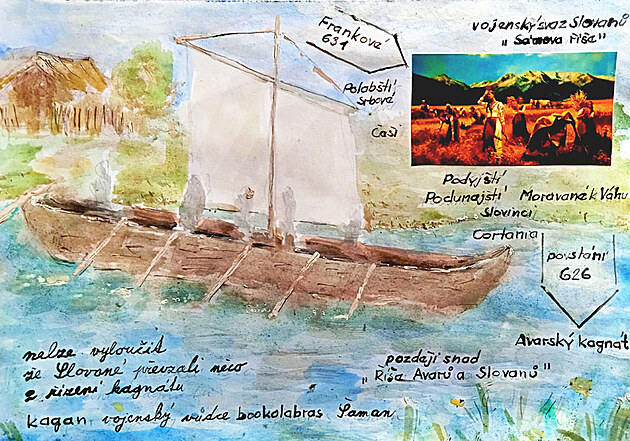 Frankové
631
vojenský svaz Slovanů
„ Sámova říše"
Polabští
Srbové
Češi
Podyjští
Podunajští Moravané k Váhu
Slovinci
Corťania
povstání
626
Avarský kagnát
nelze vyloučit
že Slované převzali něco
z řízení kagnátu
pozdějí snad
„ Říša Avarů a Slovanů "
kagan vojensky vůdce bookolabras Šaman